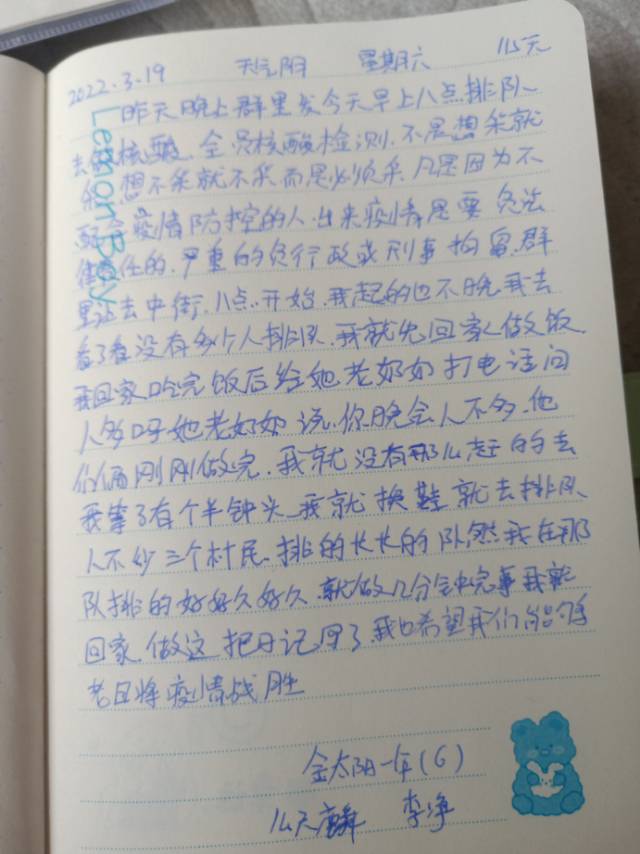 2022.3.19 天气阴 星期六 115天
昨天晚上群里发今天早上八点排队
去做核酸.全员核酸检测.不是想采就
采想不采就不采而是必须采.凡是因为不
配合疫情防控的人.出来疫情是要负法
律责任的.严重的负行政或刑事拘留.群
里让去中街.八点.开始.我起的也不晚.我去
看了看没有多个人排队.我就先回家做饭.
我回家吃完饭后给她老奶奶打电话问
人多吗她老奶奶说.你晚会人不多.他
们俩刚刚做完.我就没有那么赶的去
我等了有个半钟头.我就换鞋就去排队
人不少三个村民.排的长长的队然我在那
队排的好好久好久.就做几分钟完事我就
回家.做这把日记写了.我也希望我们能够
老日将疫情战胜
金太阳一年(6)
李净
Lemon Boy